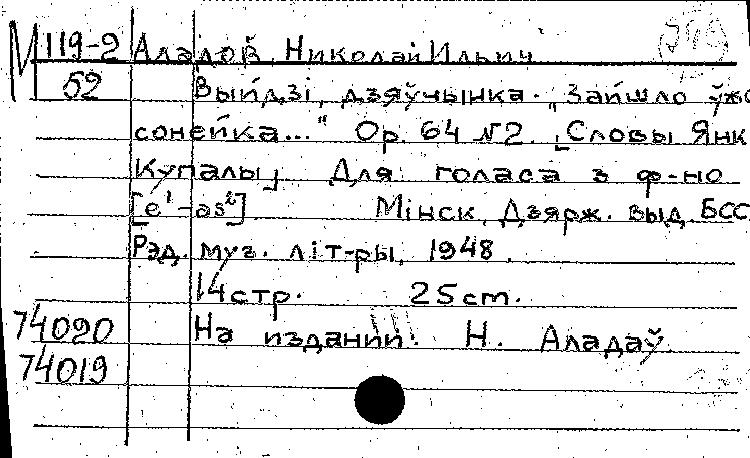 М 119-2 Аладов, Николай Ильич
52 Выйдзі, дзяўчынка. „Зайшло ўжо
сонейка..." Ор. 64 №2. [Словы Янк
Купалы] Для голаса з ф-но
[e¹-as²] Мінск, Дзярж. выд. БСС
Рэд. муз. літ-ры, 1948.
14 стр. 25 cm.
74020 На издании: Н. Аладаў.
74019